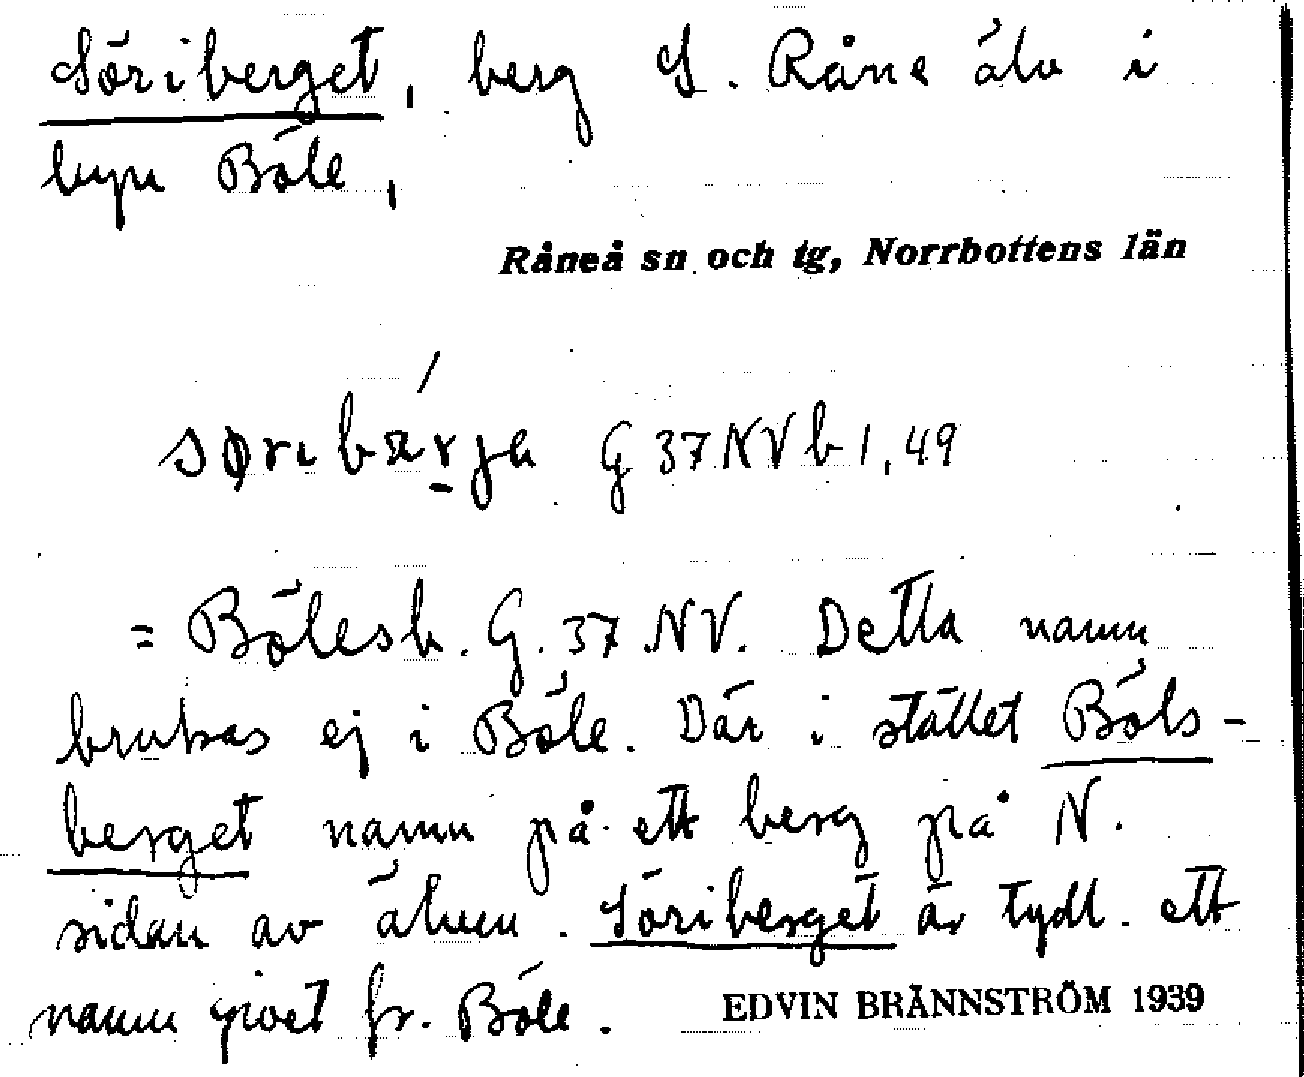 Söriberget, berg S. Råne älv i
byn Böle,
Råneå sn och tg, Norrbottens län
søribærja G 37 NV b 1, 49
= Bölesb. G. 37. NV. Detta namn
brukas ej i Böle. Där i stället Böls-
berget namn på ett berg på N.
sidan av älven. Söriberget är tydl. ett
namn givet fr. Böle.
EDVIN BRÄNNSTRÖM 1939